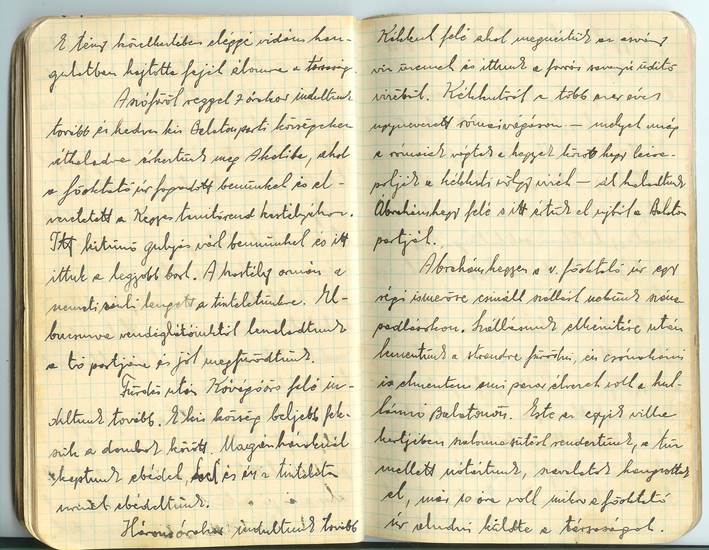 E tény következtében eléggé vidám han-
gulatban hajtotta fejét álomra a társaság.
reggel 7 órakor indultunk
tovább és kedves kis Balatonparti községeken
áthaladva érkeztünk meg Akaliba, ahol
a főoktató úr fogadott bennünket és el-
vezetett a Kegyes tanítórend kastélyához.
Itt kitünő gulyás várt bennünket és itt
ittuk a legjobb bort. A kastély ormán a
nemzeti zászló lengett a tiszteletünkre. El-
bucsuzva vendéglátóinktól lementünk
a tó partjára és jól megfürödtünk.
Fürdés után Kővágóörs felé in-
dultunk tovább. E kis község beljebb fek-
szik a dombok között. Magánházaknál
kaptunk ebédet, és én a
ebédeltünk.
Három órakor indultunk tovább
Kékkut felé ahol megnéztük az ásvány
víz üzemet és ittunk a forrás savanyú üdítő
vizéből. Kékkutról a több ezer éves
ugynevezett római vágáson — melyet még
a rómaiak vágtak a hegyek között hogy lecsa-
polják a kékkuti völgy vizét — át haladtunk
Ábrahámhegy felé s itt értük el ujból a Balaton
partját.
Ábrahámhegyen a v. főoktató úr egy
régi ismerőse csinált szállást nekünk széna-
padlásokon. Szállásunk elkészítése után
lementünk a strandra fürödni, én csónakázni
is elmentem ami nagy élvezet volt a hul-
lámzó Balatonon. Este az egyik villa
kertjében szalonnasütést rendeztünk, a tűz
mellett nótáztunk, szavalatok hangzottak
el, már 10 óra volt mikor a főoktató
úr aludni küldte a társaságot.